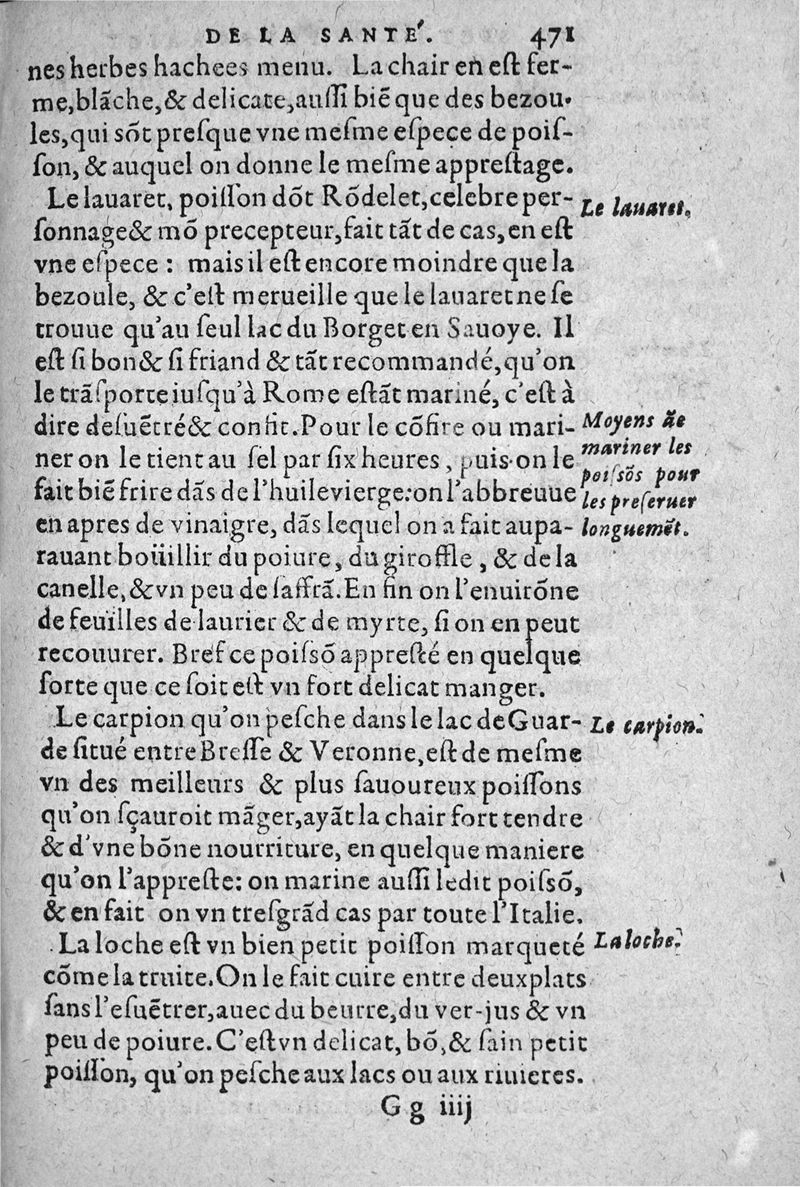 DE LA SANTE'. 471
nes herbes hachees menu. La chair en eſt fer-
me,blãche,& delicate,auſſi biẽ que des bezou-
les,qui sõt preſque vne meſme eſpece de poiſ-
ſon, & auquel on donne le meſme appreſtage.
Le lauaret, poiſſon dõt Rõdelet,celebre per-
ſonnage& mõ precepteur,fait tãt de cas,en eſt
vne eſpece : mais il eſt encore moindre que la
bezoule, & c'eſt merueille que le lauaret ne ſe
trouue qu'au ſeul lac du Borget en Sauoye. Il
eſt ſi bon& ſi friand & tãt recommandé,qu'on
le trãſporte iuſqu'à Rome eſtãt mariné, c'eſt à
dire deſuẽtré& confit.Pour le cõfire ou mari-
ner on le tient au ſel par ſix heures , puis on le
fait biẽ frire dãs de l'huile vierge:on l'abbreuue
en apres de vinaigre, dãs lequel on a fait aupa-
rauant boüillir du poiure, du giroffle , & de la
canelle,&vn peu de ſaffrã.En fin on l'enuirõne
de feuilles de laurier & de myrte, ſi on en peut
recouurer. Bref ce poiſsõ appreſté en quelque
ſorte que ce ſoit eſt vn fort delicat manger.
Le carpion qu'on peſche dans le lac de Guar-
de ſitué entre Breſſe & Veronne,eſt de meſme
vn des meilleurs & plus ſauoureux poiſſons
qu'on ſçauroit mãger,ayãt la chair fort tendre
& d'vne bõne nourriture, en quelque maniere
qu'on l'appreſte: on marine auſſi ledit poiſsõ,
& en fait on vn treſgrãd cas par toute l'Italie.
La loche eſt vn bien petit poiſſon marqueté
cõme la truite.On le fait cuire entre deux plats
ſans l'eſuẽtrer,auec du beurre,du ver-jus & vn
peu de poiure.C'eſt vn delicat, bõ,& ſain petit
poiſſon, qu'on peſche aux lacs ou aux riuieres.
G g iiij
Le lauaret.
Moyens de
mariner les
poiſsõs pour
les preſeruer
longuemẽt.
Le carpion.
La loche.